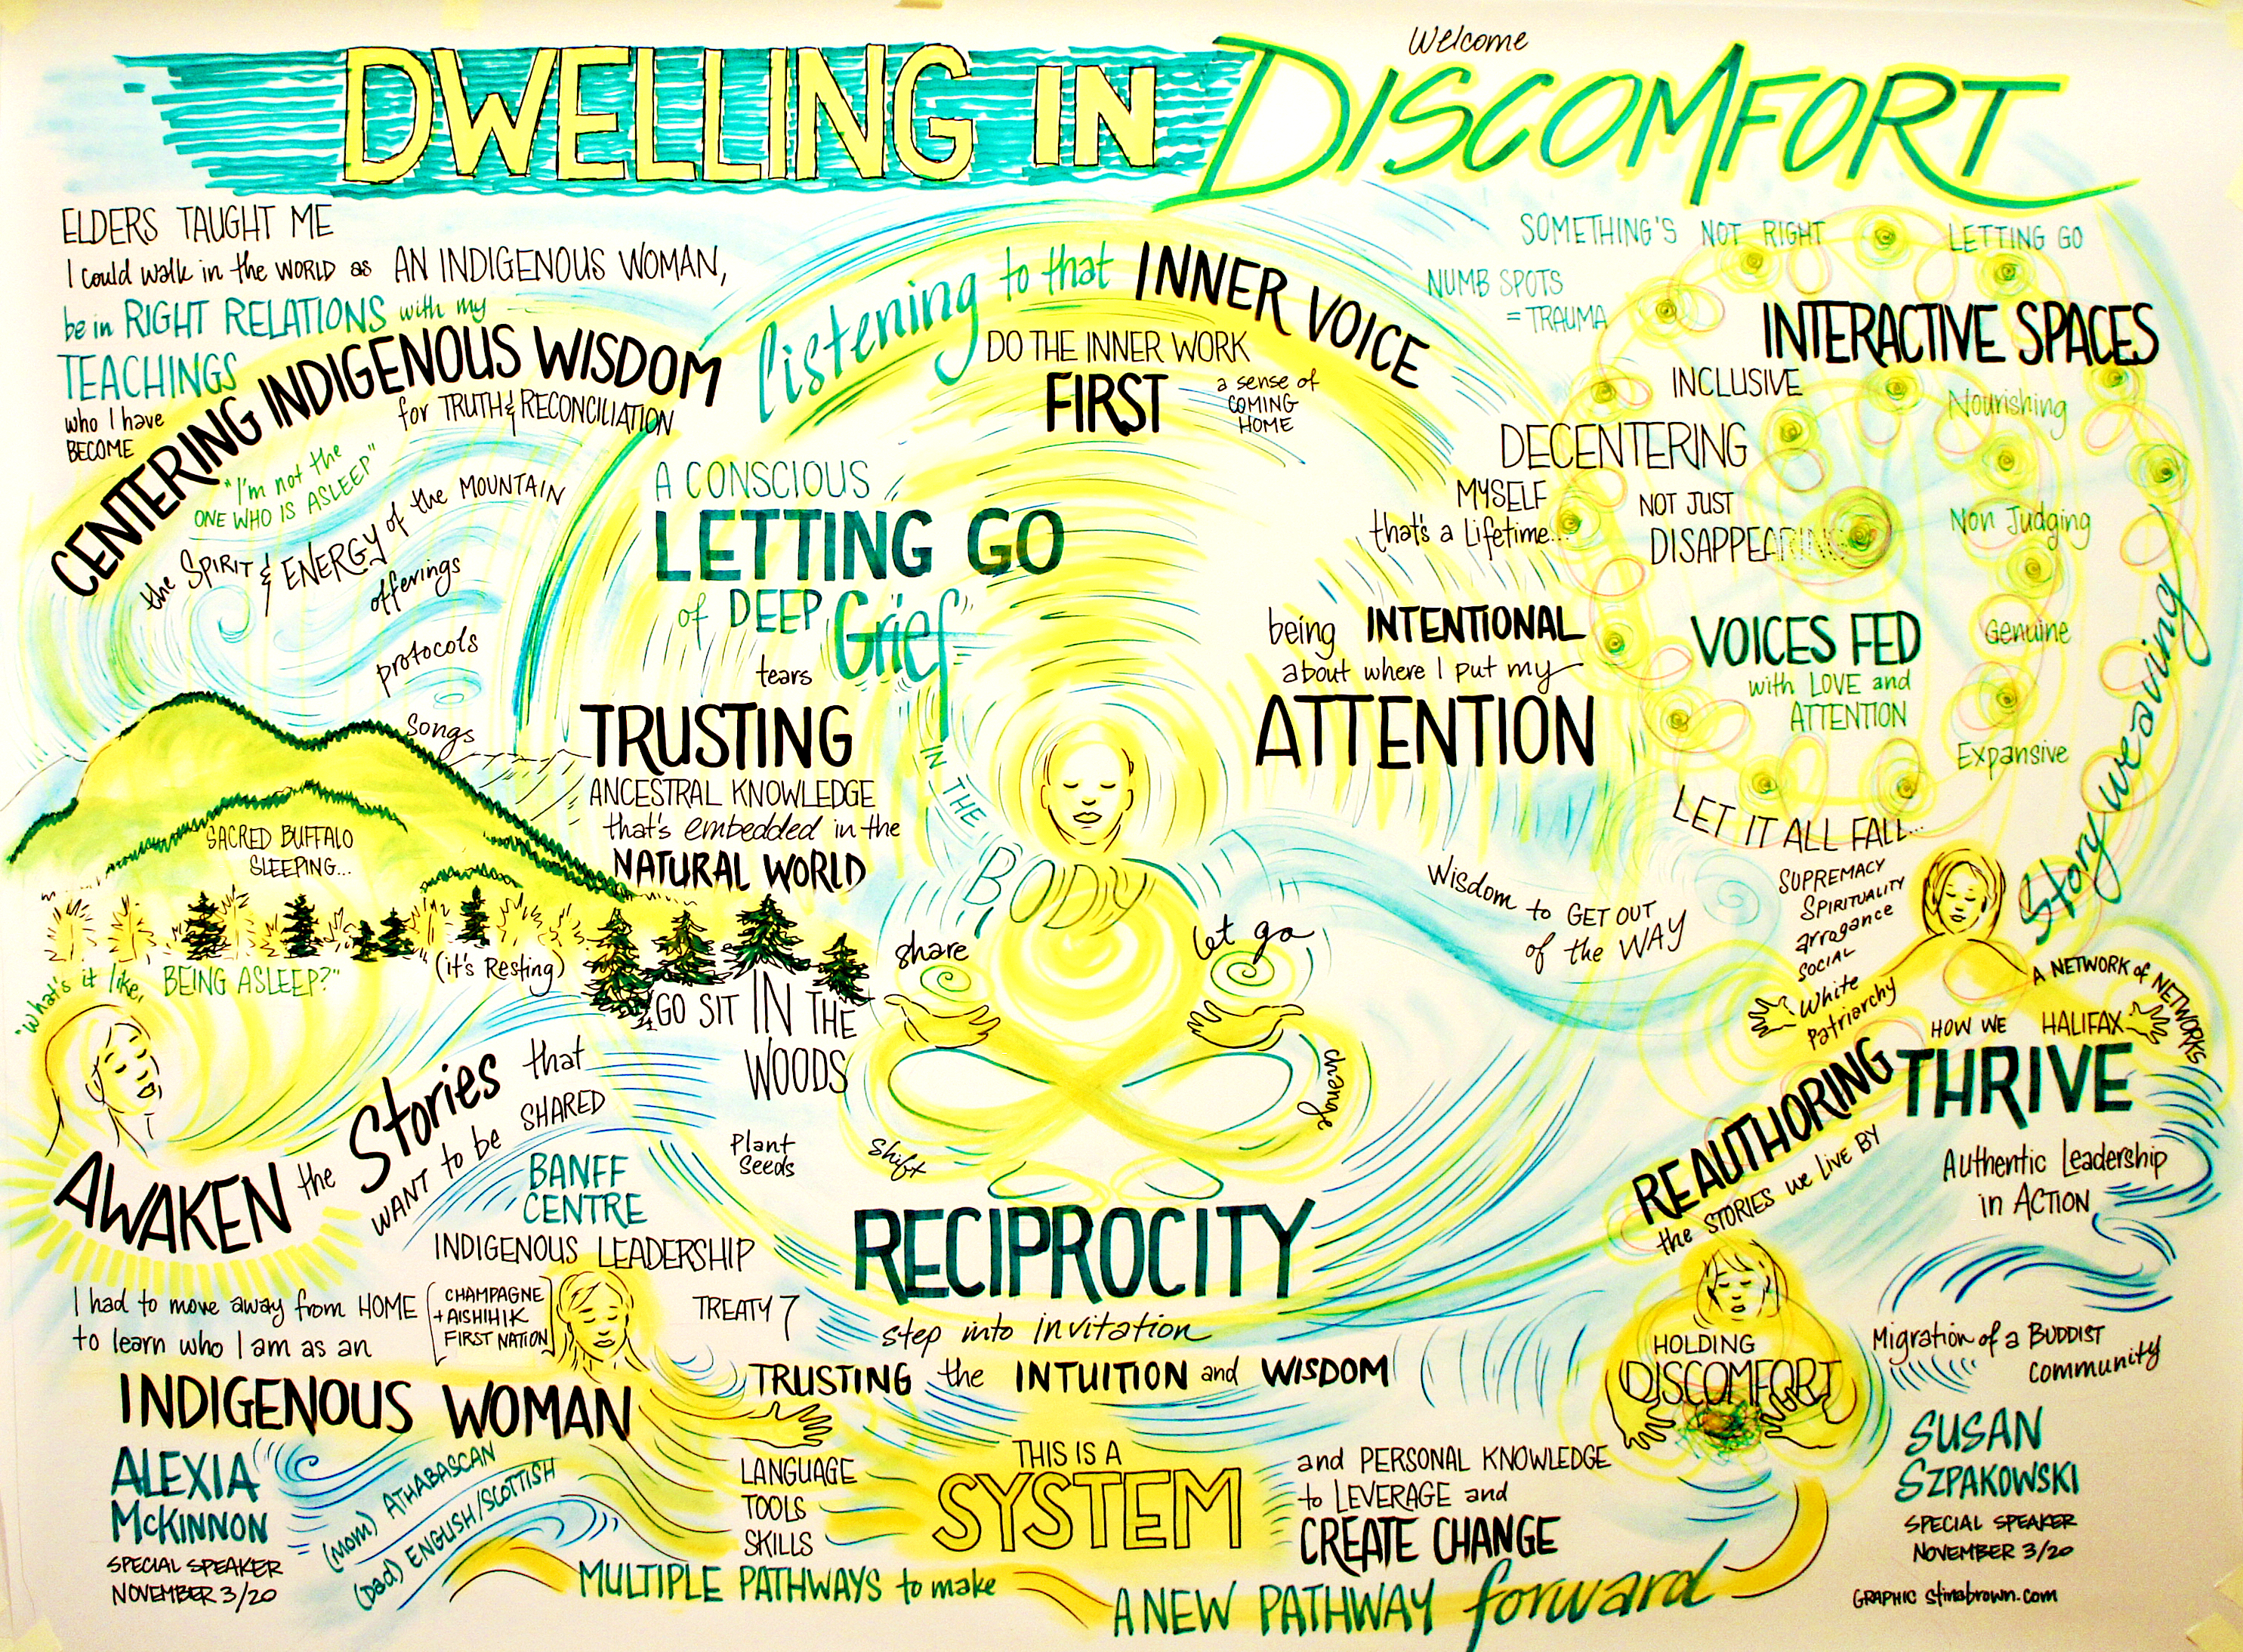 Welcome
DWELLING IN DISCOMFORT
ELDERS TAUGHT ME
I could walk in the WORLD as AN INDIGENOUS WOMAN,
be in RIGHT RELATIONS with my
TEACHINGS
who I have
BECOME
CENTERING INDIGENOUS WISDOM
for TRUTH & RECONCILIATION
"I'm not the
ONE WHO IS ASLEEP"
the SPIRIT & ENERGY of the MOUNTAIN
offerings
protocols
Songs
SACRED BUFFALO
SLEEPING...
"What's it like, BEING ASLEEP?"
(it's Resting)
listening to that INNER VOICE
DO THE INNER WORK
FIRST
a sense of
COMING
HOME
A CONSCIOUS
LETTING GO
of DEEP Grief
tears
IN THE
BODY
TRUSTING
ANCESTRAL KNOWLEDGE
that's embedded in the
NATURAL WORLD
GO SIT IN THE
WOODS
being INTENTIONAL
about where I put my
ATTENTION
share
let go
change
shift
Plant
Seeds
Wisdom to GET OUT
of the WAY
SOMETHING'S NOT RIGHT
LETTING GO
NUMB SPOTS
= TRAUMA
INTERACTIVE SPACES
INCLUSIVE
DECENTERING
MYSELF
that's a Lifetime...
NOT JUST
DISAPPEARING
Nourishing
Non Judging
Genuine
Expansive
VOICES FED
with LOVE and
ATTENTION
Story weaving
LET IT ALL FALL...
SUPREMACY
SPIRITUALITY
arrogance
SOCIAL
White
Patriarchy
A NETWORK of NETWORKS
HOW WE HALIFAX
THRIVE
REAUTHORING
the STORIES we LIVE BY
Authentic Leadership
in ACTION
AWAKEN the Stories that
WANT to be SHARED
BANFF
CENTRE
INDIGENOUS LEADERSHIP
I had to move away from HOME
to learn who I am as an
CHAMPAGNE
+ AISHIHIK
FIRST NATION
TREATY 7
INDIGENOUS WOMAN
ALEXIA
McKINNON
SPECIAL SPEAKER
NOVEMBER 3/20
(Mom) ATHABASCAN
(Dad) ENGLISH/SCOTTISH
RECIPROCITY
step into invitation
TRUSTING the INTUITION and WISDOM
LANGUAGE
TOOLS
SKILLS
THIS IS A
SYSTEM
and PERSONAL KNOWLEDGE
to LEVERAGE and
CREATE CHANGE
MULTIPLE PATHWAYS to make
A NEW PATHWAY forward
HOLDING
DISCOMFORT
Migration of a BUDDIST
community
SUSAN
SZPAKOWSKI
SPECIAL SPEAKER
NOVEMBER 3/20
GRAPHIC stinabrown.com